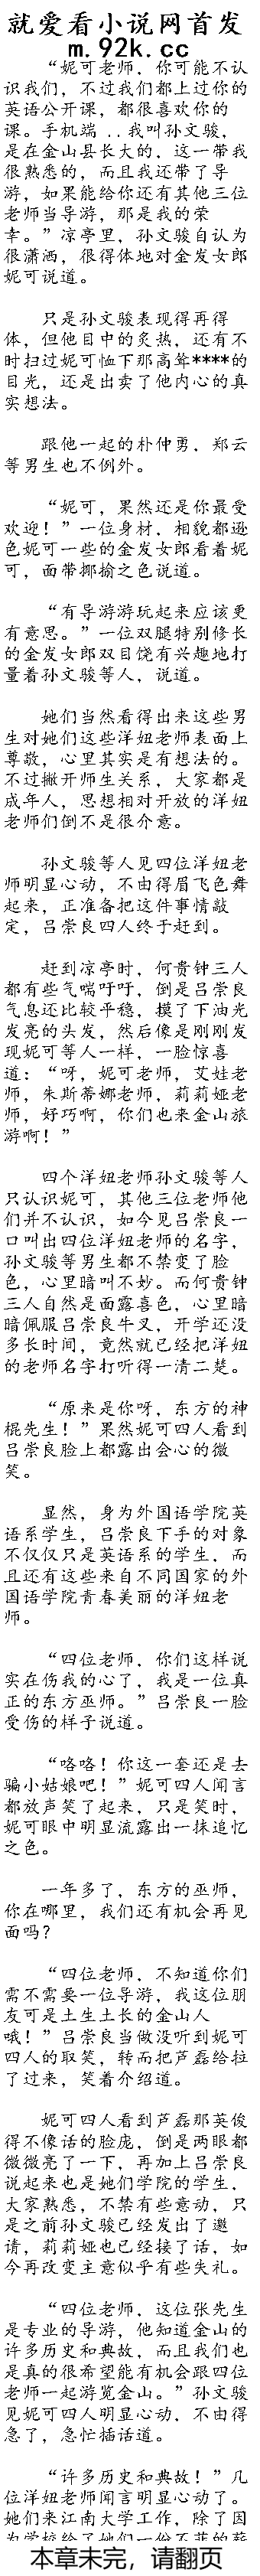 就爱看小说网首发
m.92k.cc
“妮可老师，你可能不认
识我们，不过我们都上过你的
英语公开课，都很喜欢你的
课。手机端 ..我叫孙文骏，
是在金山县长大的，这一带我
很熟悉的，而且我还带了导
游，如果能给你还有其他三位
老师当导游，那是我的荣
幸。”凉亭里，孙文骏自认为
很潇洒，很得体地对金发女郎
妮可说道。
只是孙文骏表现得再得
体，但他目中的炙热，还有不
时扫过妮可恤下那高耸****的
目光，还是出卖了他内心的真
实想法。
跟他一起的朴仲勇，郑云
等男生也不例外。
“妮可，果然还是你最受
欢迎！”一位身材，相貌都逊
色妮可一些的金发女郎看着妮
可，面带揶揄之色说道。
“有导游游玩起来应该更
有意思。”一位双腿特别修长
的金发女郎双目饶有兴趣地打
量着孙文骏等人，说道。
她们当然看得出来这些男
生对她们这些洋妞老师表面上
尊敬，心里其实是有想法的。
不过撇开师生关系，大家都是
成年人，思想相对开放的洋妞
老师们倒不是很介意。
孙文骏等人见四位洋妞老
师明显心动，不由得眉飞色舞
起来，正准备把这件事情敲
定，吕崇良四人终于赶到。
赶到凉亭时，何贵钟三人
都有些气喘吁吁，倒是吕崇良
气息还比较平稳，摸了下油光
发亮的头发，然后像是刚刚发
现妮可等人一样，一脸惊喜
道：“呀，妮可老师，艾娃老
师，朱斯蒂娜老师，莉莉娅老
师，好巧啊，你们也来金山旅
游啊！”
四个洋妞老师孙文骏等人
只认识妮可，其他三位老师他
们并不认识，如今见吕崇良一
口叫出四位洋妞老师的名字，
孙文骏等男生都不禁变了脸
色，心里暗叫不妙。而何贵钟
三人自然是面露喜色，心里暗
暗佩服吕崇良牛叉，开学还没
多长时间，竟然就已经把洋妞
的老师名字打听得一清二楚。
“原来是你呀，东方的神
棍先生！”果然妮可四人看到
吕崇良脸上都露出会心的微
笑。
显然，身为外国语学院英
语系学生，吕崇良下手的对象
不仅仅只是英语系的学生，而
且还有这些来自不同国家的外
国语学院青春美丽的洋妞老
师。
“四位老师，你们这样说
实在伤我的心了，我是一位真
正的东方巫师。”吕崇良一脸
受伤的样子说道。
“咯咯！你这一套还是去
骗小姑娘吧！”妮可四人闻言
都放声笑了起来，只是笑时，
妮可眼中明显流露出一抹追忆
之色。
一年多了，东方的巫师，
你在哪里，我们还有机会再见
面吗？
“四位老师，不知道你们
需不需要一位导游，我这位朋
友可是土生土长的金山人
哦！”吕崇良当做没听到妮可
四人的取笑，转而把芦磊给拉
了过来，笑着介绍道。
妮可四人看到芦磊那英俊
得不像话的脸庞，倒是两眼都
微微亮了一下，再加上吕崇良
说起来也是她们学院的学生，
大家熟悉，不禁有些意动，只
是之前孙文骏已经发出了邀
请，莉莉娅也已经接了话，如
今再改变主意似乎有些失礼。
“四位老师，这位张先生
是专业的导游，他知道金山的
许多历史和典故，而且我们也
是真的很希望能有机会跟四位
老师一起游览金山。”孙文骏
见妮可四人明显心动，不由得
急了，急忙插话道。
“许多历史和典故！”几
位洋妞老师闻言明显心动了。
她们来江南大学工作，除了因
为学校给了她们一份不菲的薪
本章未完，请翻页